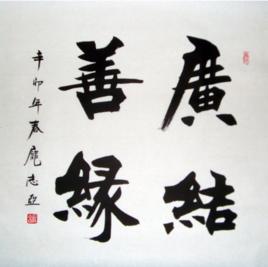 廣結
善緣
辛卯年春龐志亞